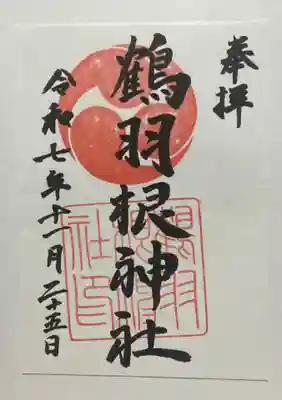 奉拝
鶴羽根神社
令和七年十一月二十五日